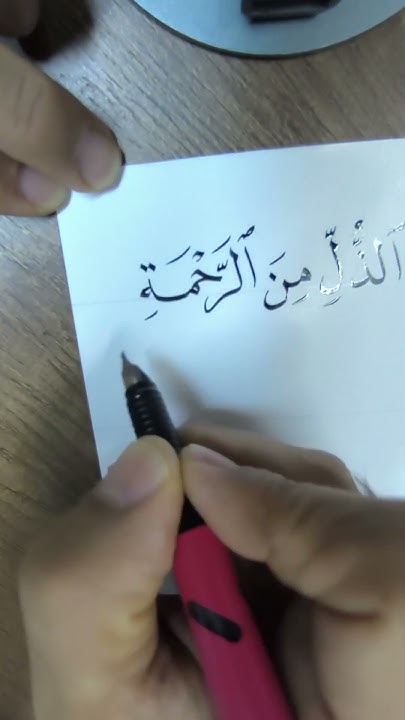 ٱلذُّلِّ مِنَ ٱلرَّحْمَةِ